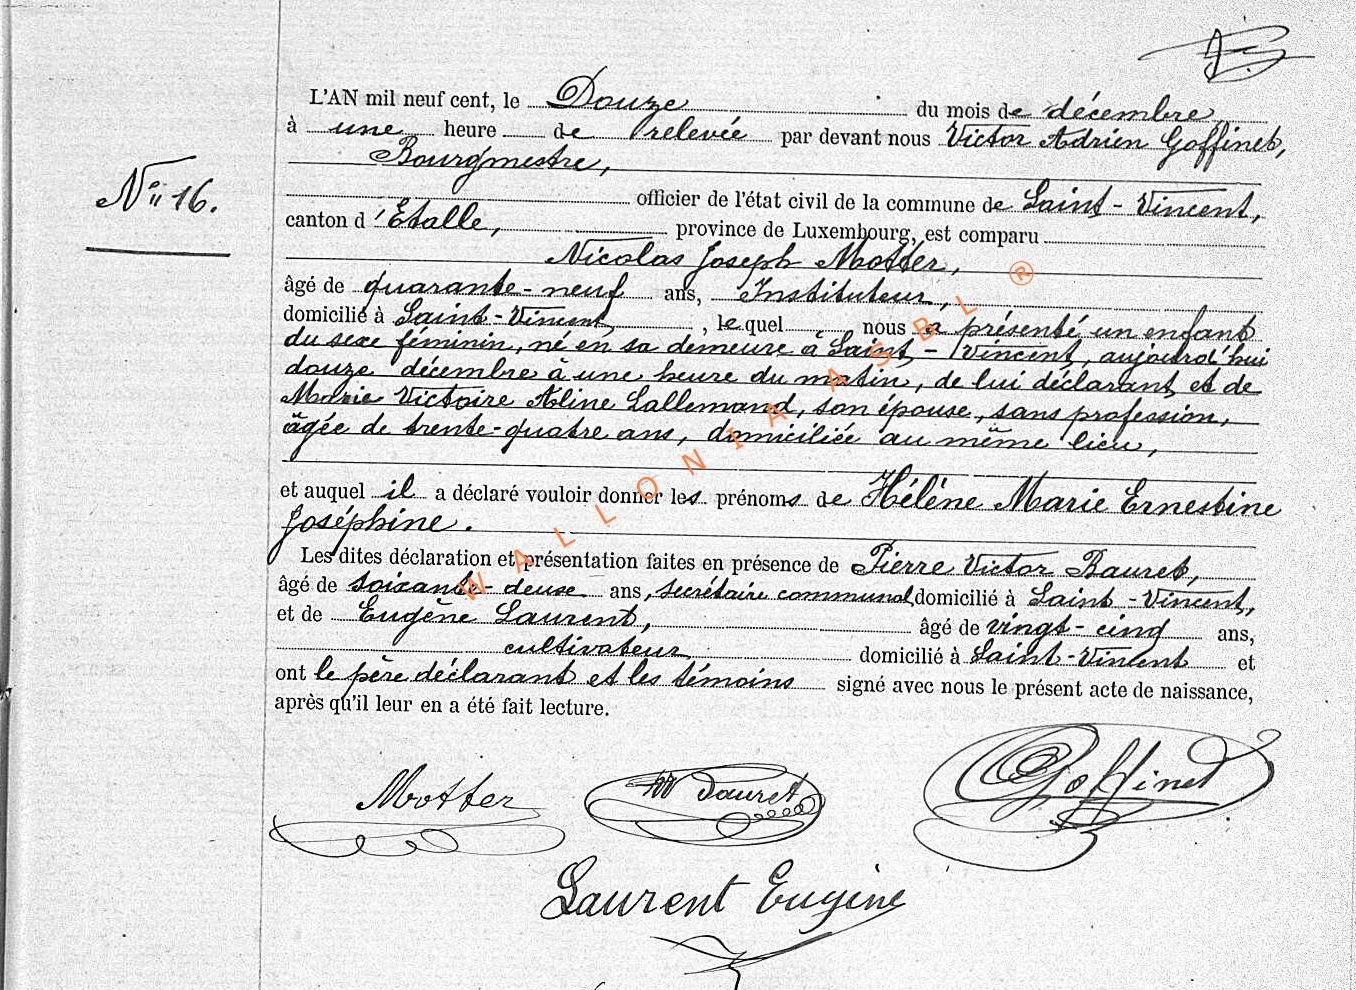 L'AN mil neuf cent, le Douze du mois de décembre
à une heure de relevée par devant nous Victor Adrien Goffinet,
Bourgmestre,
N° 16.
officier de l'état civil de la commune de Saint-Vincent,
canton d'Etalle, province de Luxembourg, est comparu
Nicolas Joseph Motter,
âgé de quarante-neuf ans, Instituteur,
domicilié à Saint-Vincent, lequel nous a présenté un enfant
du sexe féminin, né en sa demeure à Saint-Vincent, aujourd'hui
douze décembre à une heure du matin, de lui déclarant et de
Marie Victoire Aline Lallemand, son épouse, sans profession,
âgée de trente-quatre ans, domiciliée au même lieu,
et auquel il a déclaré vouloir donner les prénoms de Hélène Marie Ernestine
Joséphine.
Les dites déclaration et présentation faites en présence de Pierre Victor Bauret,
âgé de soixante-deux ans, secrétaire communal domicilié à Saint-Vincent,
et de Eugène Laurent, âgé de vingt-cinq ans,
cultivateur domicilié à Saint-Vincent et
ont le père déclarant et les témoins signé avec nous le présent acte de naissance,
après qu'il leur en a été fait lecture.
Motter Bauret Goffinet
Laurent Eugène
WALLONIA ASBL ®